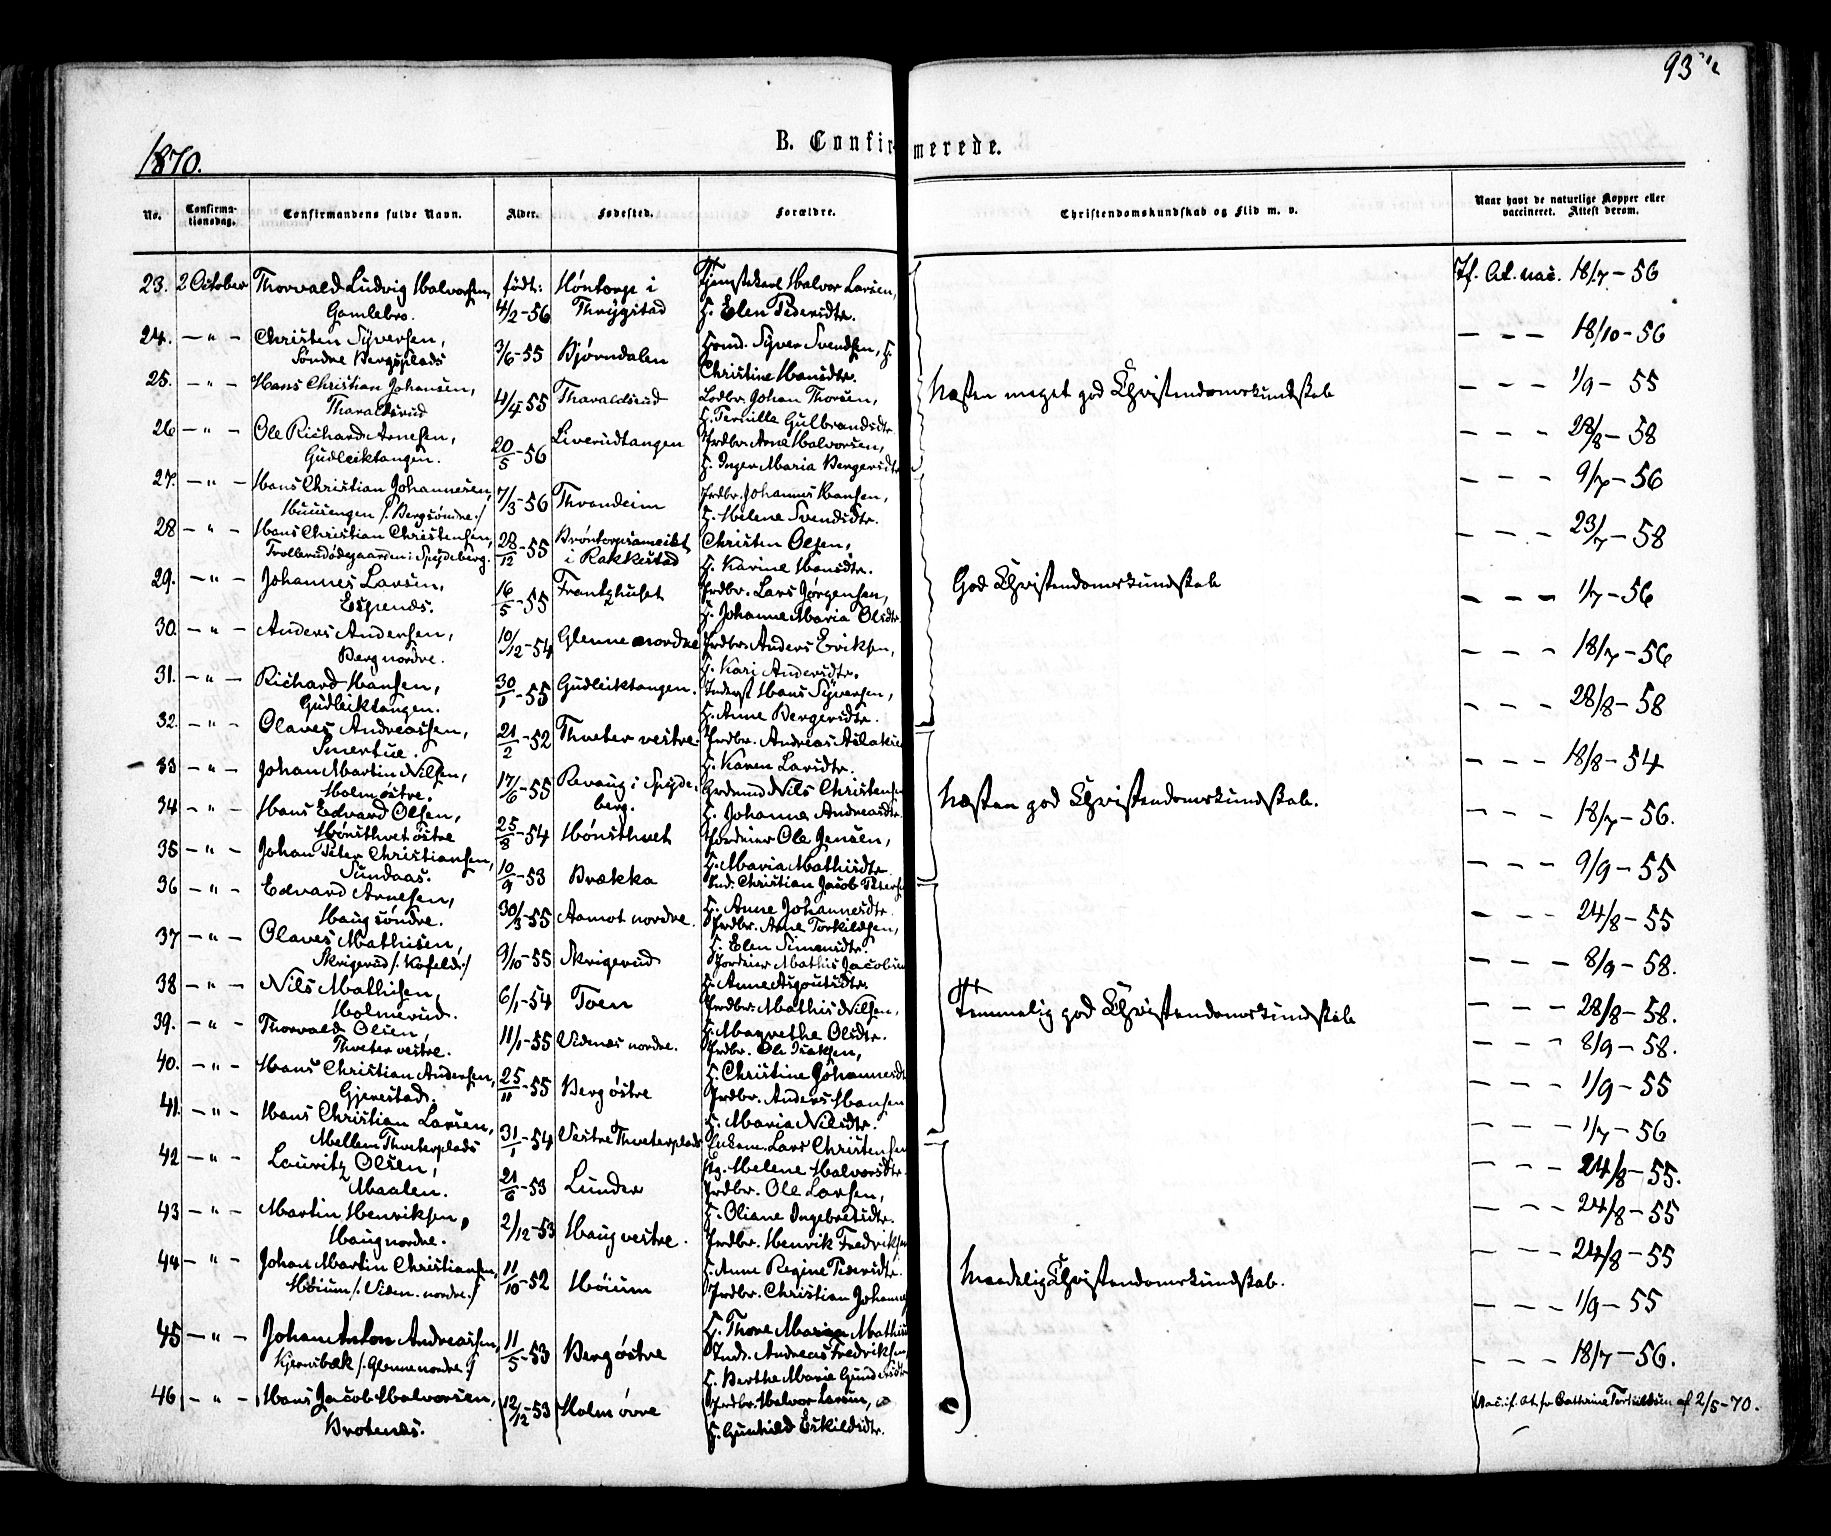 93
1870.
B. Confirmerede.
No.
Confirma-
tionsdag.
Confirmandens fulde Navn.
Alder.
Fødested.
Forældre.
Christendomskundskab og Flid m. v.
Naar havt de naturlige Kopper eller
vaccineret. Attest derom.
23. 2 October Thorvald Ludvig Halvorsen, født: Høntorp i Tjenestekarl Halvor Larsen, If. At. vac. 18/7-56
Gamlebro. 4/2-56 Thrygstad H. Elen Pedersdtr.
24. — " — Christen Syversen, 3/6-55 Bjørndalen Svend. Syver Svendsen, H. — — — 18/10-56
Søndre Bergsplads Christine Hansdtr.
25. — " — Hans Christian Johansen, 4/4-55 Tharaldsrud Johan Thorsen, — — — 1/9-55
Tharaldsrud H. Pernille Gulbrandsdtr.
Næsten meget god Christendomskundskab
26 — " — Ole Richard Arnesen, 20/5-56 Liverudtangen Prdbr. Arne Halvorsen, — — — 28/8-58
Gudleiktangen. H. Inger Maria Bergersdtr
27. — " — Hans Christian Johannesen, 7/3-56 Throndeim Prdbr. Johannes Hansen, — — — 9/7-56
/: Berg søndre :/ H. Helene Svendsdtr.
28 — " — Hans Christian Christensen, 28/12-55 Christen Olsen, — — — 23/7-58
Trollerudødegaarden i Spydeberg. i Rakkestad H. Karine Hansdtr.
29. — " — Johannes Larsen, 16/5-55 Frantzhuset Prdbr. Lars Jørgensen, — — — 1/7-56
Espenæs. H. Johanne Maria Olsdtr.
God Christendomskundskab
30. — " — Anders Andersen, 10/12-54 Glenne nordre Prdbr. Anders Eriksen, — — — 18/7-56
Berg nordre. H. Kari Andersdtr.
31. — " — Richard Hansen, 30/1-55 Gudleiktangen. Inderst Hans Syversen, — — — 28/8-58
Gudleiktangen. H. Anne Bergersdtr.
32. — " — Olaves Andreassen, 21/2-52 Thveter vestre. Prdbr. Andreas Aslaksen — — — 18/8-54
Smertue. H. Karen Larsdtr.
33 — " — Johan Martin Nilsen, 17/6-55 Revaug i Spyde- Grdmnd Nils Christensen — — — 18/7-56.
Holm østre. berg. H. Johanne Andreasdtr.
Næsten god Christendomskundskab.
34 — " — Hans Edvard Olsen, 25/3-54 Hønsthvet Jordeier Ole Jensen, — — — 9/9-55
Hønsthvet østre H. Maria Mathisdtr.
35 — " — Johan Peter Christiansen, 10/9-53 Brække Ind. Christian Jacob Peters — — — 24/8-55
Sundaas. H. Anne Johannesdtr.
36 — " — Edvard Arnesen, 30/3-55 Aamot nordre. Prdbr. Arne Torkildsen, — — — 8/9-58.
Haug søndre. H. Elen Simensdtr.
37 — " — Olaves Mathisen, 9/10-55 Skrigerud Jordeier Mathis Jacobsen — — — 28/8-58.
Skrigerud /: Kofeld :/ H. Anne Asgoutsdtr.
38 — " — Nils Mathisen, 6/1-54 Toen Prdbr. Mathis Nilsen, — — — 8/9-58.
Holmerud. H. Magrethe Olsdtr.
Temmelig god Christendomskundskab
39. — " — Thorvald Olsen, 11/1-55 Videnæs nordre. Prdbr. Ole Isaksen, — — — 1/9-55
Thveter vestre. H. Christine Johannesdtr
40. — " — Hans Christian Andersen, 25/11-55 Berg østre Prdbr. Anders Hansen — — — 1/7-56
Gjerestad. H. Maria Nilsdtr.
41. — " — Hans Christian Larsen, 31/1-54 Vestre Thveterplads Enkem. Lars Christensen — — — 24/8-55.
Mellem Thveterplads Helene Halvorsdtr.
42 — " — Lauritz Olsen, 21/6-53 Lunder Prdbr. Ole Larsen, — — — 24/8-55
Maalen. H. Oliane Ingebretsdtr.
43 — " — Martin Henriksen, 2/12-53 Haug vestre. Prdbr. Henrik Fredriksen — — — 24/8-55
Haug nordre. H. Anne Regine Pedersdtr.
44 — " — Johan Martin Christiansen, 11/10-52 Høium Prdbr. Christian Johannes — — — 1/9-55
Høium /: Viden. nordre :/ H. Thore Marie Mathis
Maadelig Christendomskundskab.
45 — " — Johan Anton Andreassen, 11/5-53 Berg østre Inds. Andreas Fredriksen, — — — 18/7-56.
Kjernsbæk /: Glenne nordre :/ H. Berthe Maria Gundersdtr
46 — " — Hans Jacob Halvorsen, 12/12-53 Holm øvre Prdbr. Halvor Larsen, Vac. if. At. fr. Cathrine Torkildsen af 2/5-70.
Brotenæs. H. Gunhild Eskildsdtr.